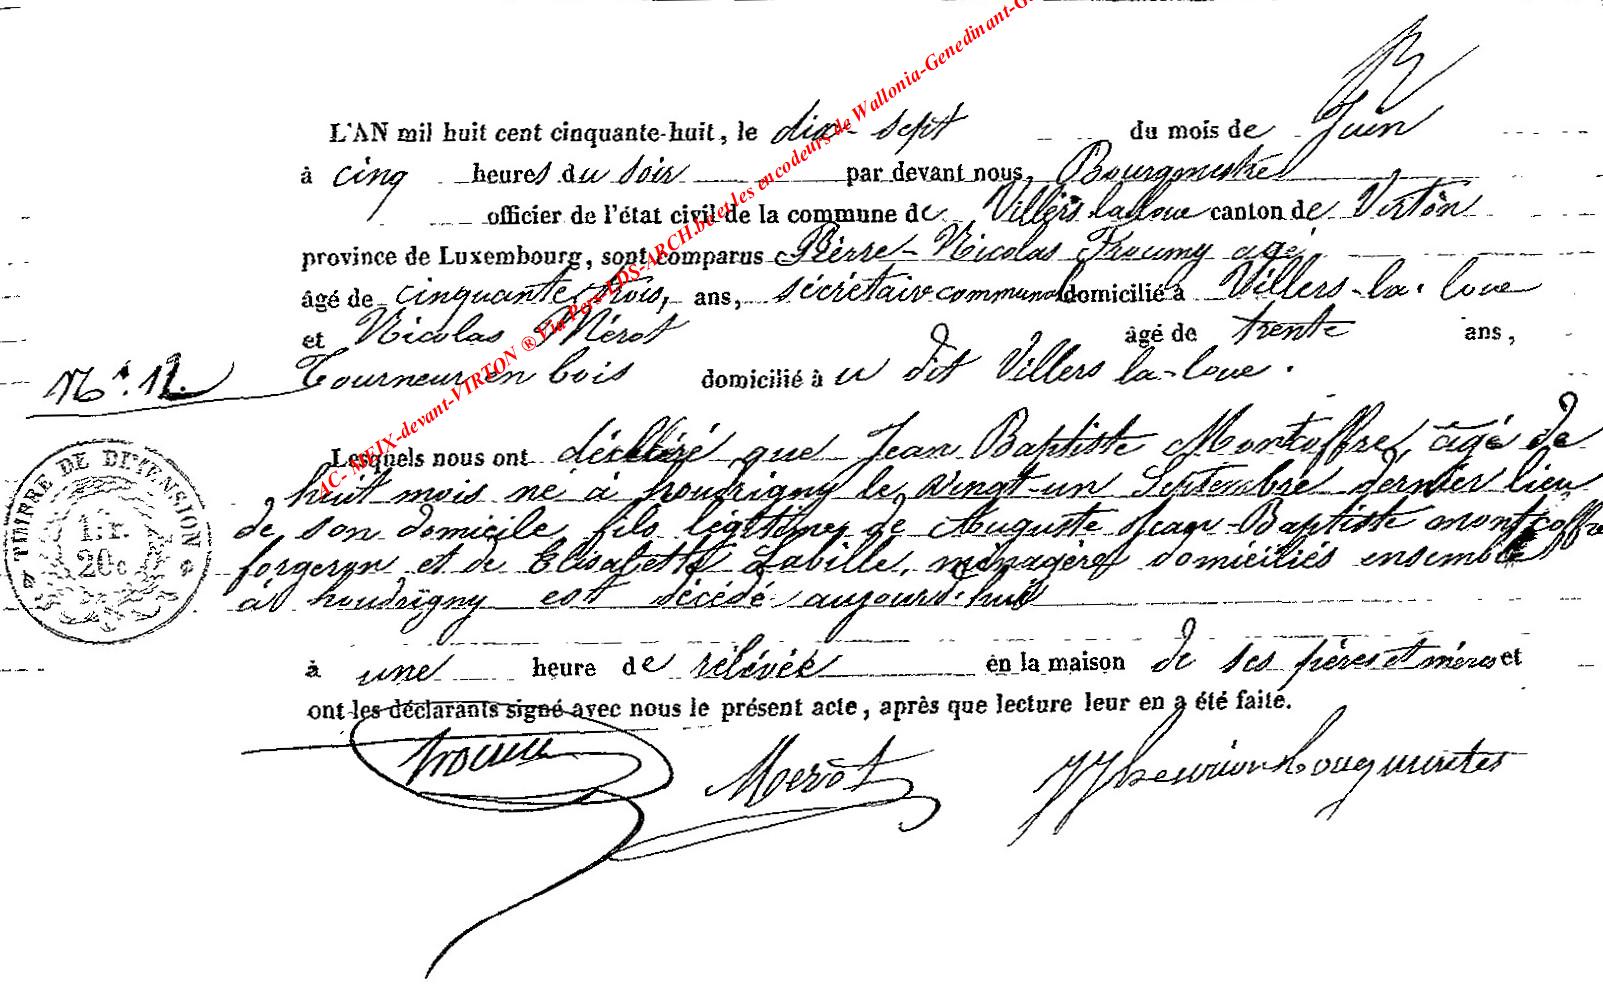 AC- MEIX-devant-VIRTON ® Via Pers-LDS-ARCH.be et les encodeurs de Wallonia-Genedinant-G
L'AN mil huit cent cinquante-huit, le dix-sept du mois de Juin
à cinq heures du soir par devant nous, Bourgmestre
officier de l'état civil de la commune de Villers la loue canton de Virton
province de Luxembourg, sont comparus Pierre-Nicolas Froumy agé
âgé de cinquante trois, ans, sécrétaire communal domicilié à Villers-la-loue
et Nicolas Mérot âgé de trente ans,
N° 12. Tourneur en bois domicilié à u dit Villers la-loue.
Lesquels nous ont déclaré que Jean Baptiste Montcoffre, âgé de
huit mois né à houdrigny le vingt-un Septembre dernier lieu
de son domicile fils légitime de Auguste Jean-Baptiste montcoffre
forgeron et de Elisabeth Labille, ménagère domiciliés ensemble
à houdrigny est décédé aujourd'hui
à une heure de rélévée en la maison de ses pères et mères et
ont les déclarants signé avec nous le présent acte, après que lecture leur en a été faite.
Mérot
TIMBRE DE DIMENSION
1 F.
20 c